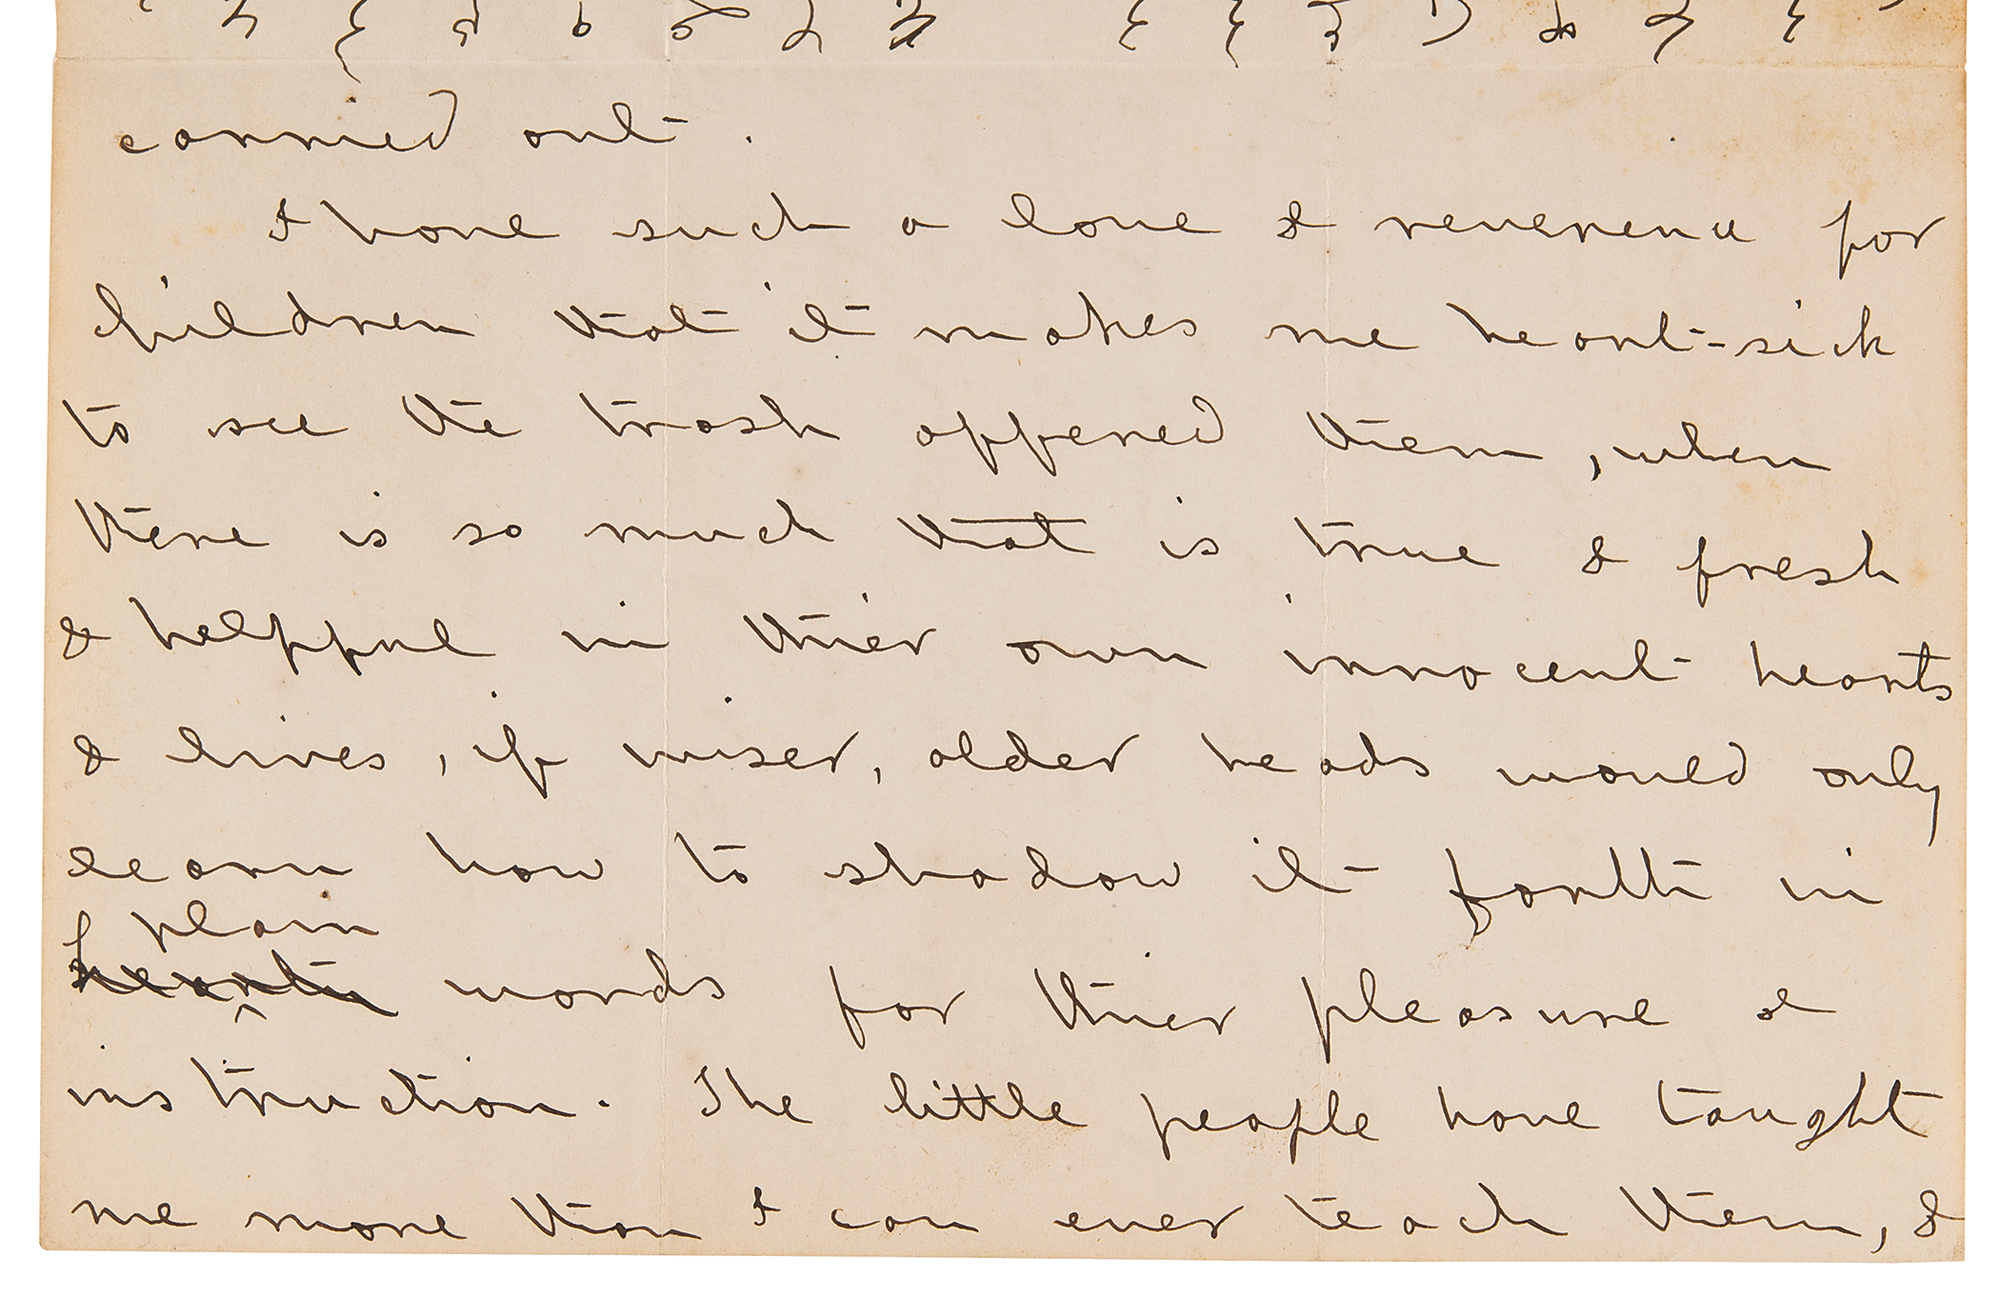 carried out.
I have such a love & reverence for
children that it makes me heart-sick
to see the trash offered them, when
there is so much that is true & fresh
& helpful in thier own innocent hearts
& lives, if wiser, older heads would only
learn how to shadow it forth in
plain
words for thier pleasure &
instruction. The little people have taught
me more than I can ever teach them, &